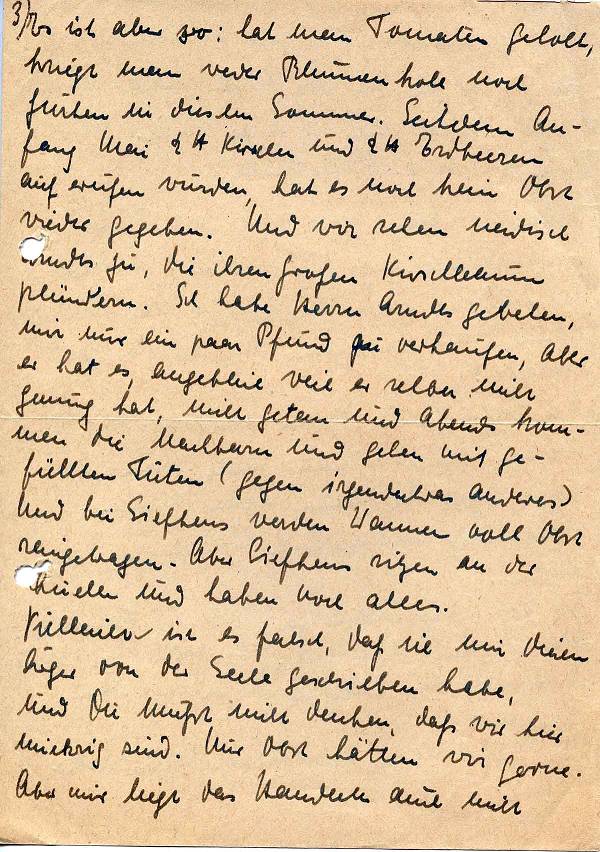 3) Es ist aber so: hat man Tomaten geholt,
kriegt man weder Blumenkohl noch
Gurken in diesem Sommer. Seitdem An-
fang Mai ½ tt Kirschen und ½ tt Erdbeeren
aufgerufen wurden, hat es noch kein Obst
wieder gegeben. Und wir sehen neidisch
Arndts zu, die ihren großen Kirschbaum
plündern. Ich habe Herrn Arndts gebeten,
mir nur ein paar Pfund zu verkaufen, aber
er hat es, angeblich weil er selber nicht
genung hat, nicht getan und Abends kom-
men die Nachbarn und gehen mit ge-
füllten Tüten (gegen irgendetwas anderes)
Und bei Siefkens werden Wannen voll Obst
reingetragen. Aber Siefkens sitzen an der
Quelle und haben noch alles.
Vielleicht ist es falsch, daß ich mir diesen
Ärger von der Seele geschrieben habe,
und Du mußt nicht denken, daß wir hier
mickrig sind. Nur Obst hätten wir gerne.
Aber mir liegt das Handeln auch nicht